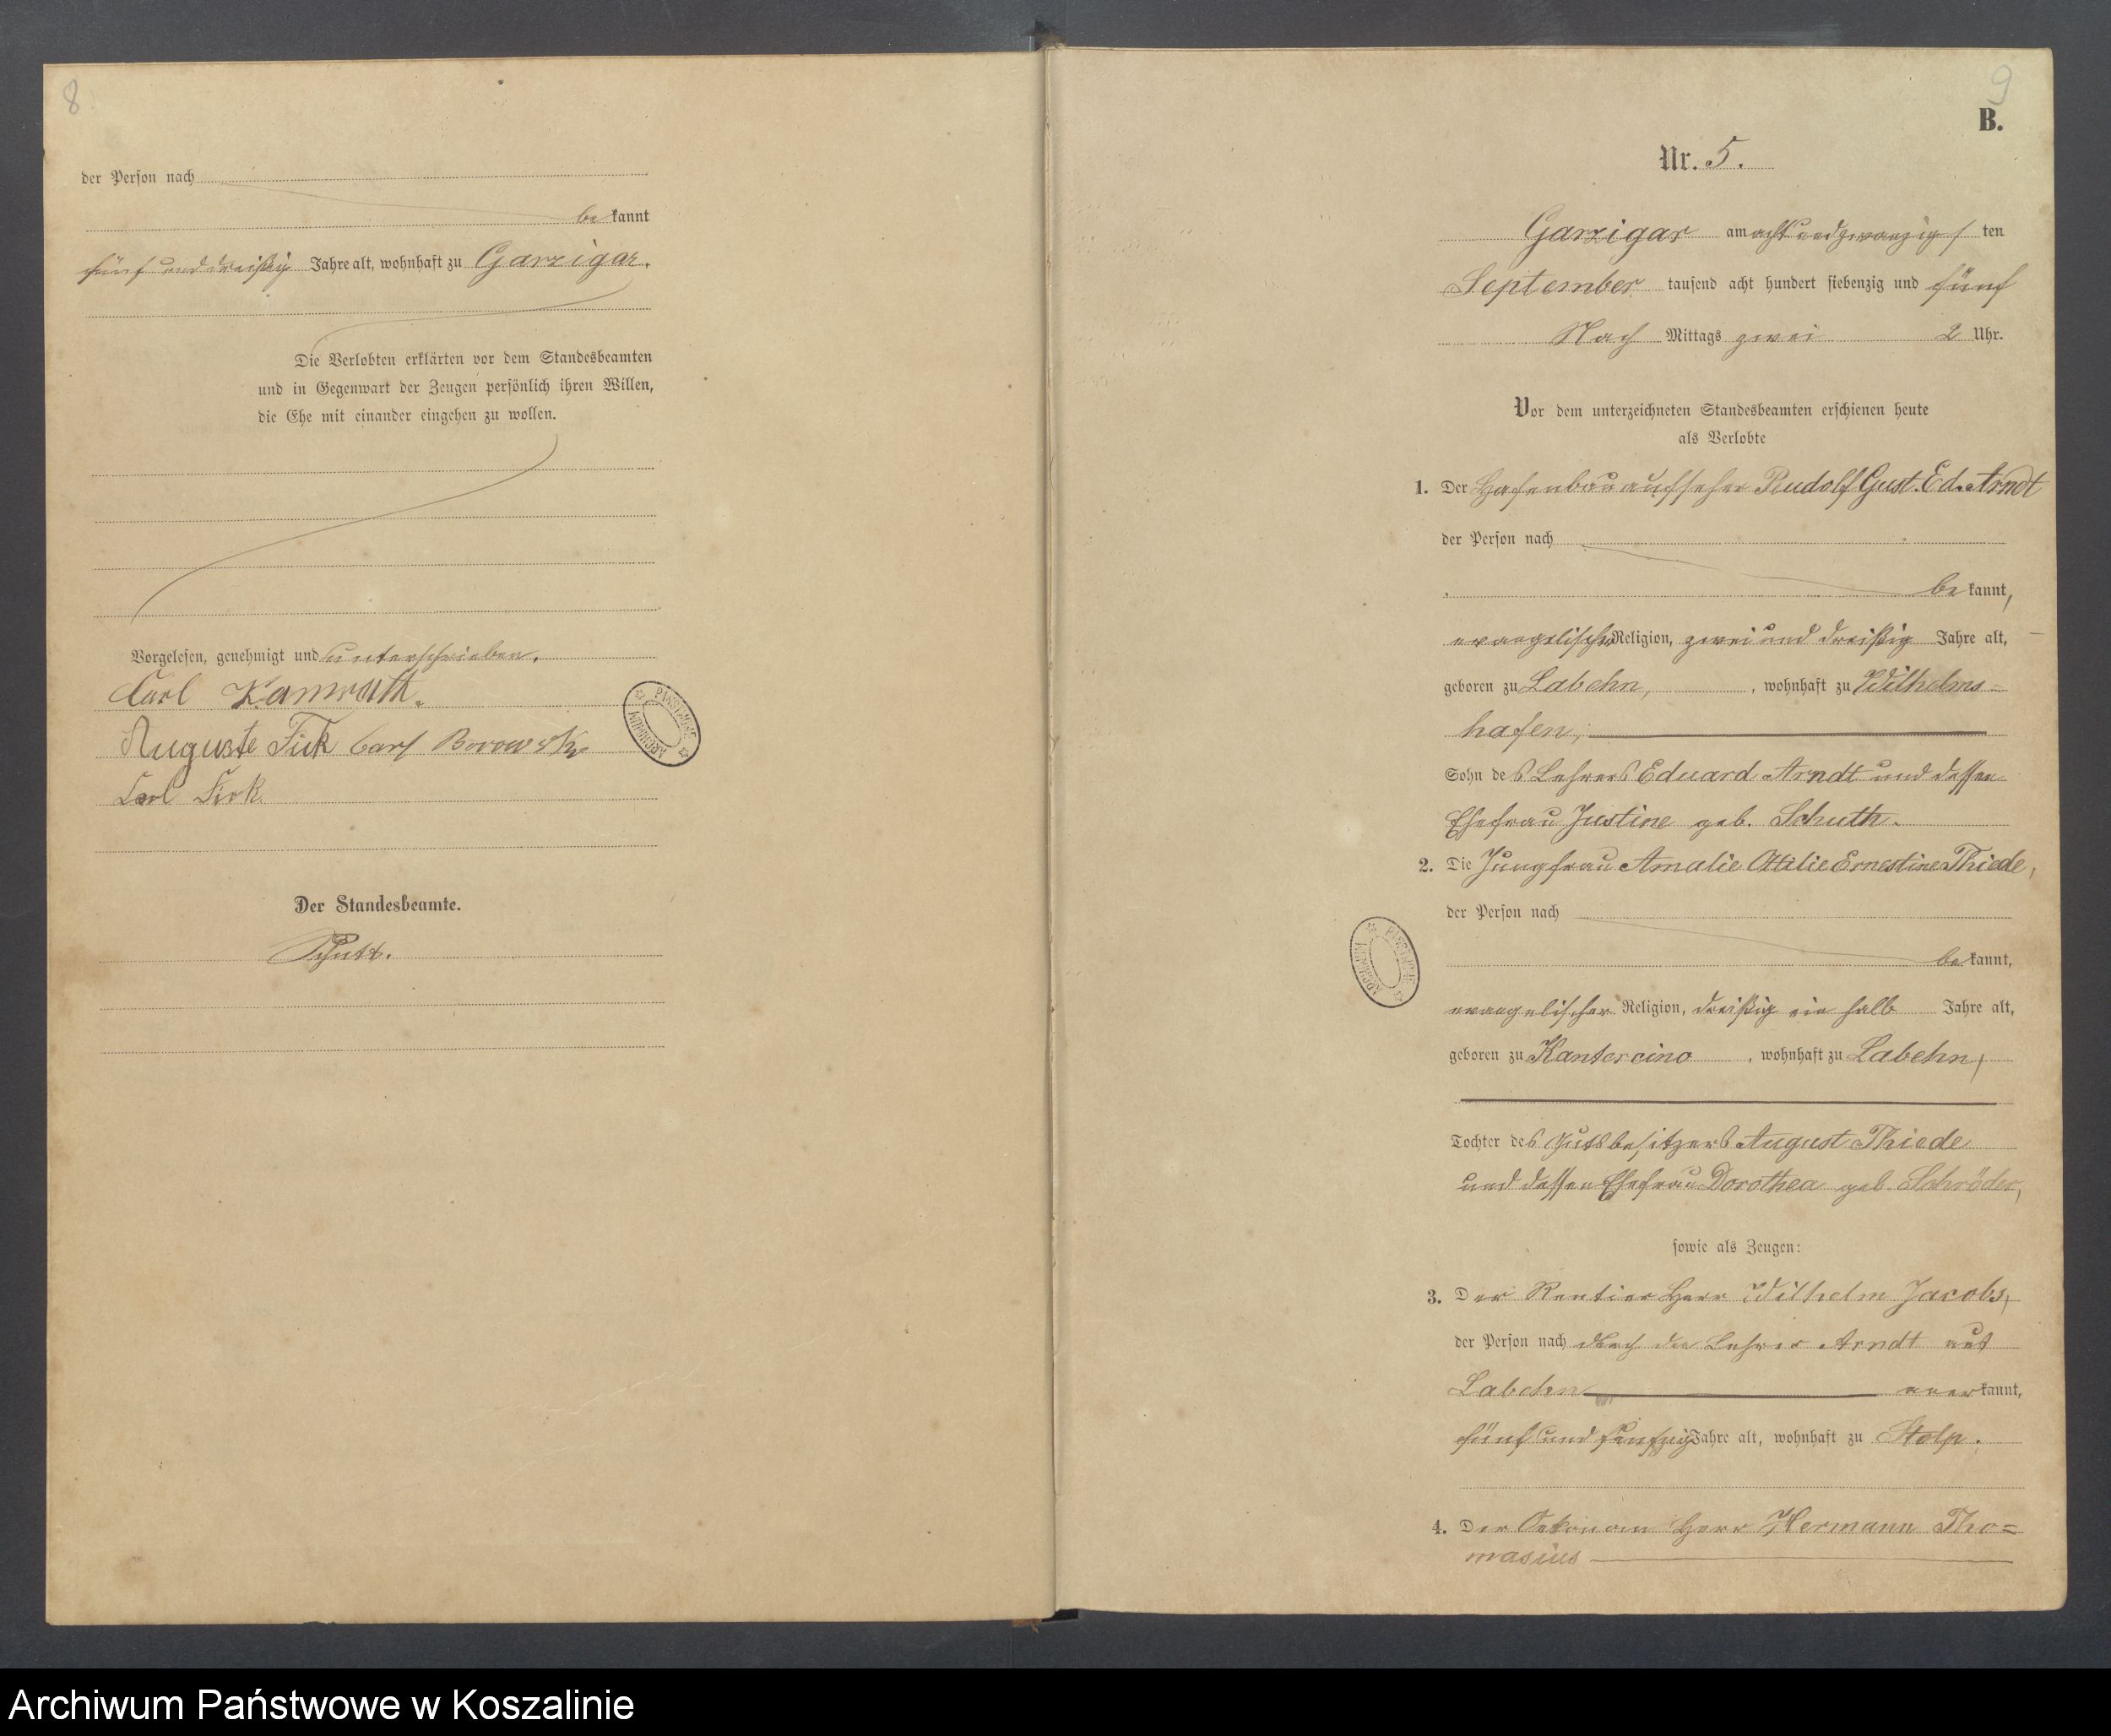 8
der Person nach
bekannt
fünf und dreißig Jahre alt, wohnhaft zu Garzigar.
Die Verlobten erklärten vor dem Standesbeamten
und in Gegenwart der Zeugen persönlich ihren Willen,
die Ehe mit einander eingehen zu wollen.
Vorgelesen, genehmigt und unterschrieben.
Carl Kamrath.
Auguste Fick Carl Borowski
Carl Fick
ARCHIWUM PAŃSTWOWE
Der Standesbeamte.
9
B.
Nr. 5.
Garzigar am acht und zwanzigsten
September tausend acht hundert siebenzig und fünf
Nach Mittags zwei 2 Uhr.
Vor dem unterzeichneten Standesbeamten erschienen heute
als Verlobte
1. Der Hafenbauaufseher Rudolf Gust. Ed. Arndt
der Person nach
bekannt,
evangelischer Religion, zwei und dreißig Jahre alt,
geboren zu Labehn, , wohnhaft zu Wilhelms-
hafen,
Sohn des Lehrers Eduard Arndt und dessen
Ehefrau Justine geb. Schuth.
2. Die Jungfrau Amalie Ottilie Ernestine Thiede,
der Person nach
bekannt,
evangelischer Religion, dreißig ein halb Jahre alt,
geboren zu Kantercino , wohnhaft zu Labehn,
Tochter des Gutsbesitzers August Thiede
und dessen Ehefrau Dorothea geb. Schröder,
sowie als Zeugen:
3. Der Rentier Herr Wilhelm Jacobs,
der Person nach durch den Lehrer Arndt aus
Labehn anerkannt,
fünf und fünfzig Jahre alt, wohnhaft zu Stolp.
4. Der Oekonom Herr Hermann Tho=
masius
ARCHIWUM PAŃSTWOWE
Archiwum Państwowe w Koszalinie